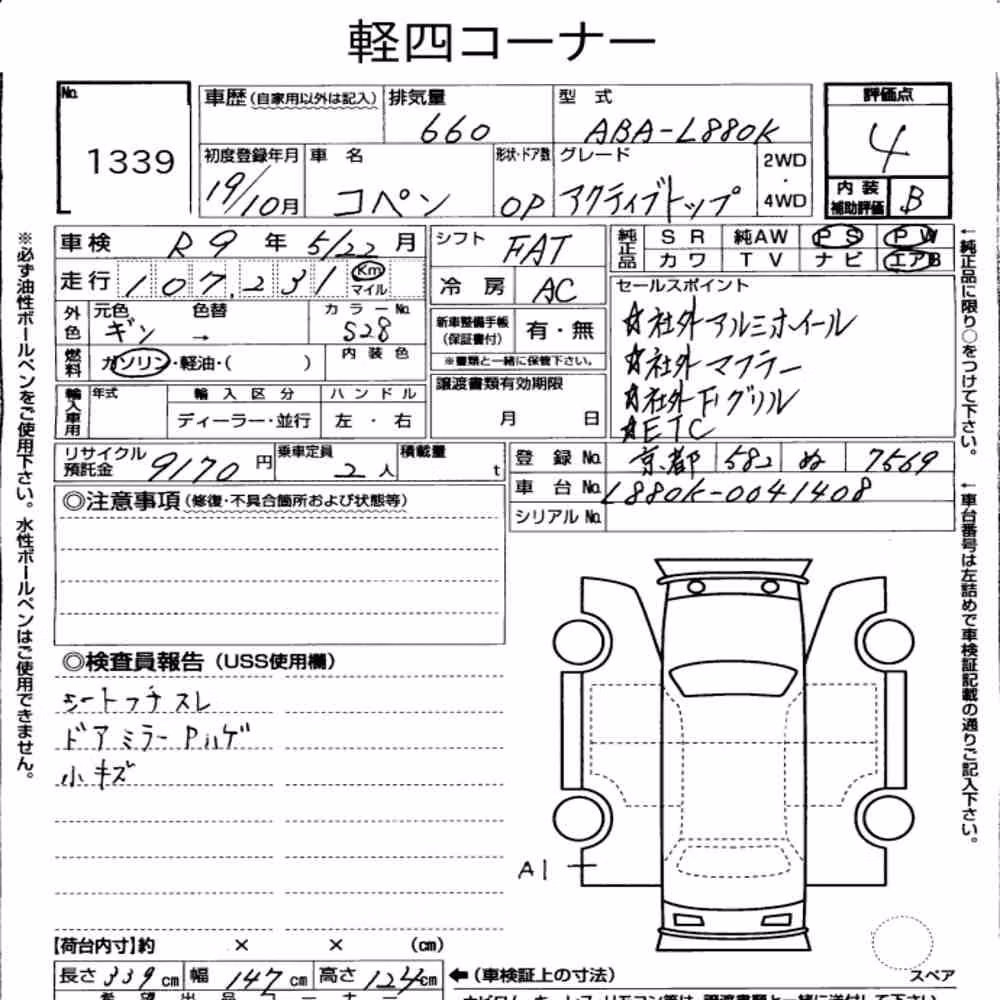 軽四コーナー
No. 1339
車歴(自家用以外は記入) 排気量 660 型式 ABA-L880K
初度登録年月 19/10月 車名 コペン 形状・ドア数 OP グレード アクティブトップ 2WD・4WD
評価点 4
内装補助評価 B
車検 R9年 5/22月
走行 107,231 Km マイル
外色 元色 ギン 色替 → カラーNo. S28
燃料 ガソリン・軽油・( ) 内装色
輸入車用 年式 輸入区分 ディーラー・並行 ハンドル 左・右
シフト FAT
冷房 AC
新車整備手帳(保証書付) 有・無
※書類と一緒に保管下さい。
譲渡書類有効期限 月 日
純正品 SR 純AW PS PW
カワ TV ナビ エアB
セールスポイント
☆社外アルミホイール
☆社外マフラー
☆社外Fグリル
☆ETC
リサイクル預託金 9170円 乗車定員 2人 積載量 t
登録No. 京都 582 ぬ 7569
車台No. L880K-0041408
シリアルNo.
◎注意事項(修復・不具合箇所および状態等)
◎検査員報告(USS使用欄)
シートフチスレ
ドアミラーPハゲ
小キズ
A1
【荷台内寸】約 × × (cm)
長さ 339cm 幅 147cm 高さ 124cm ←(車検証上の寸法)
スペア
希望出品コーナー
※必ず油性ボールペンをご使用下さい。水性ボールペンはご使用できません。
←純正品に限り○をつけて下さい。
←車台番号は左詰めで車検証記載の通りご記入下さい。